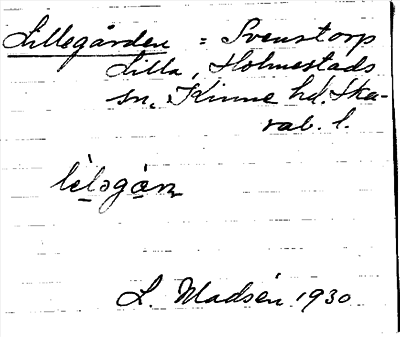 Lillegården = Svenstorp
Lilla, Holmestads
sn, Kinne hd. Ska-
rab. l.
lìloga̱n
L. Madsén 1930